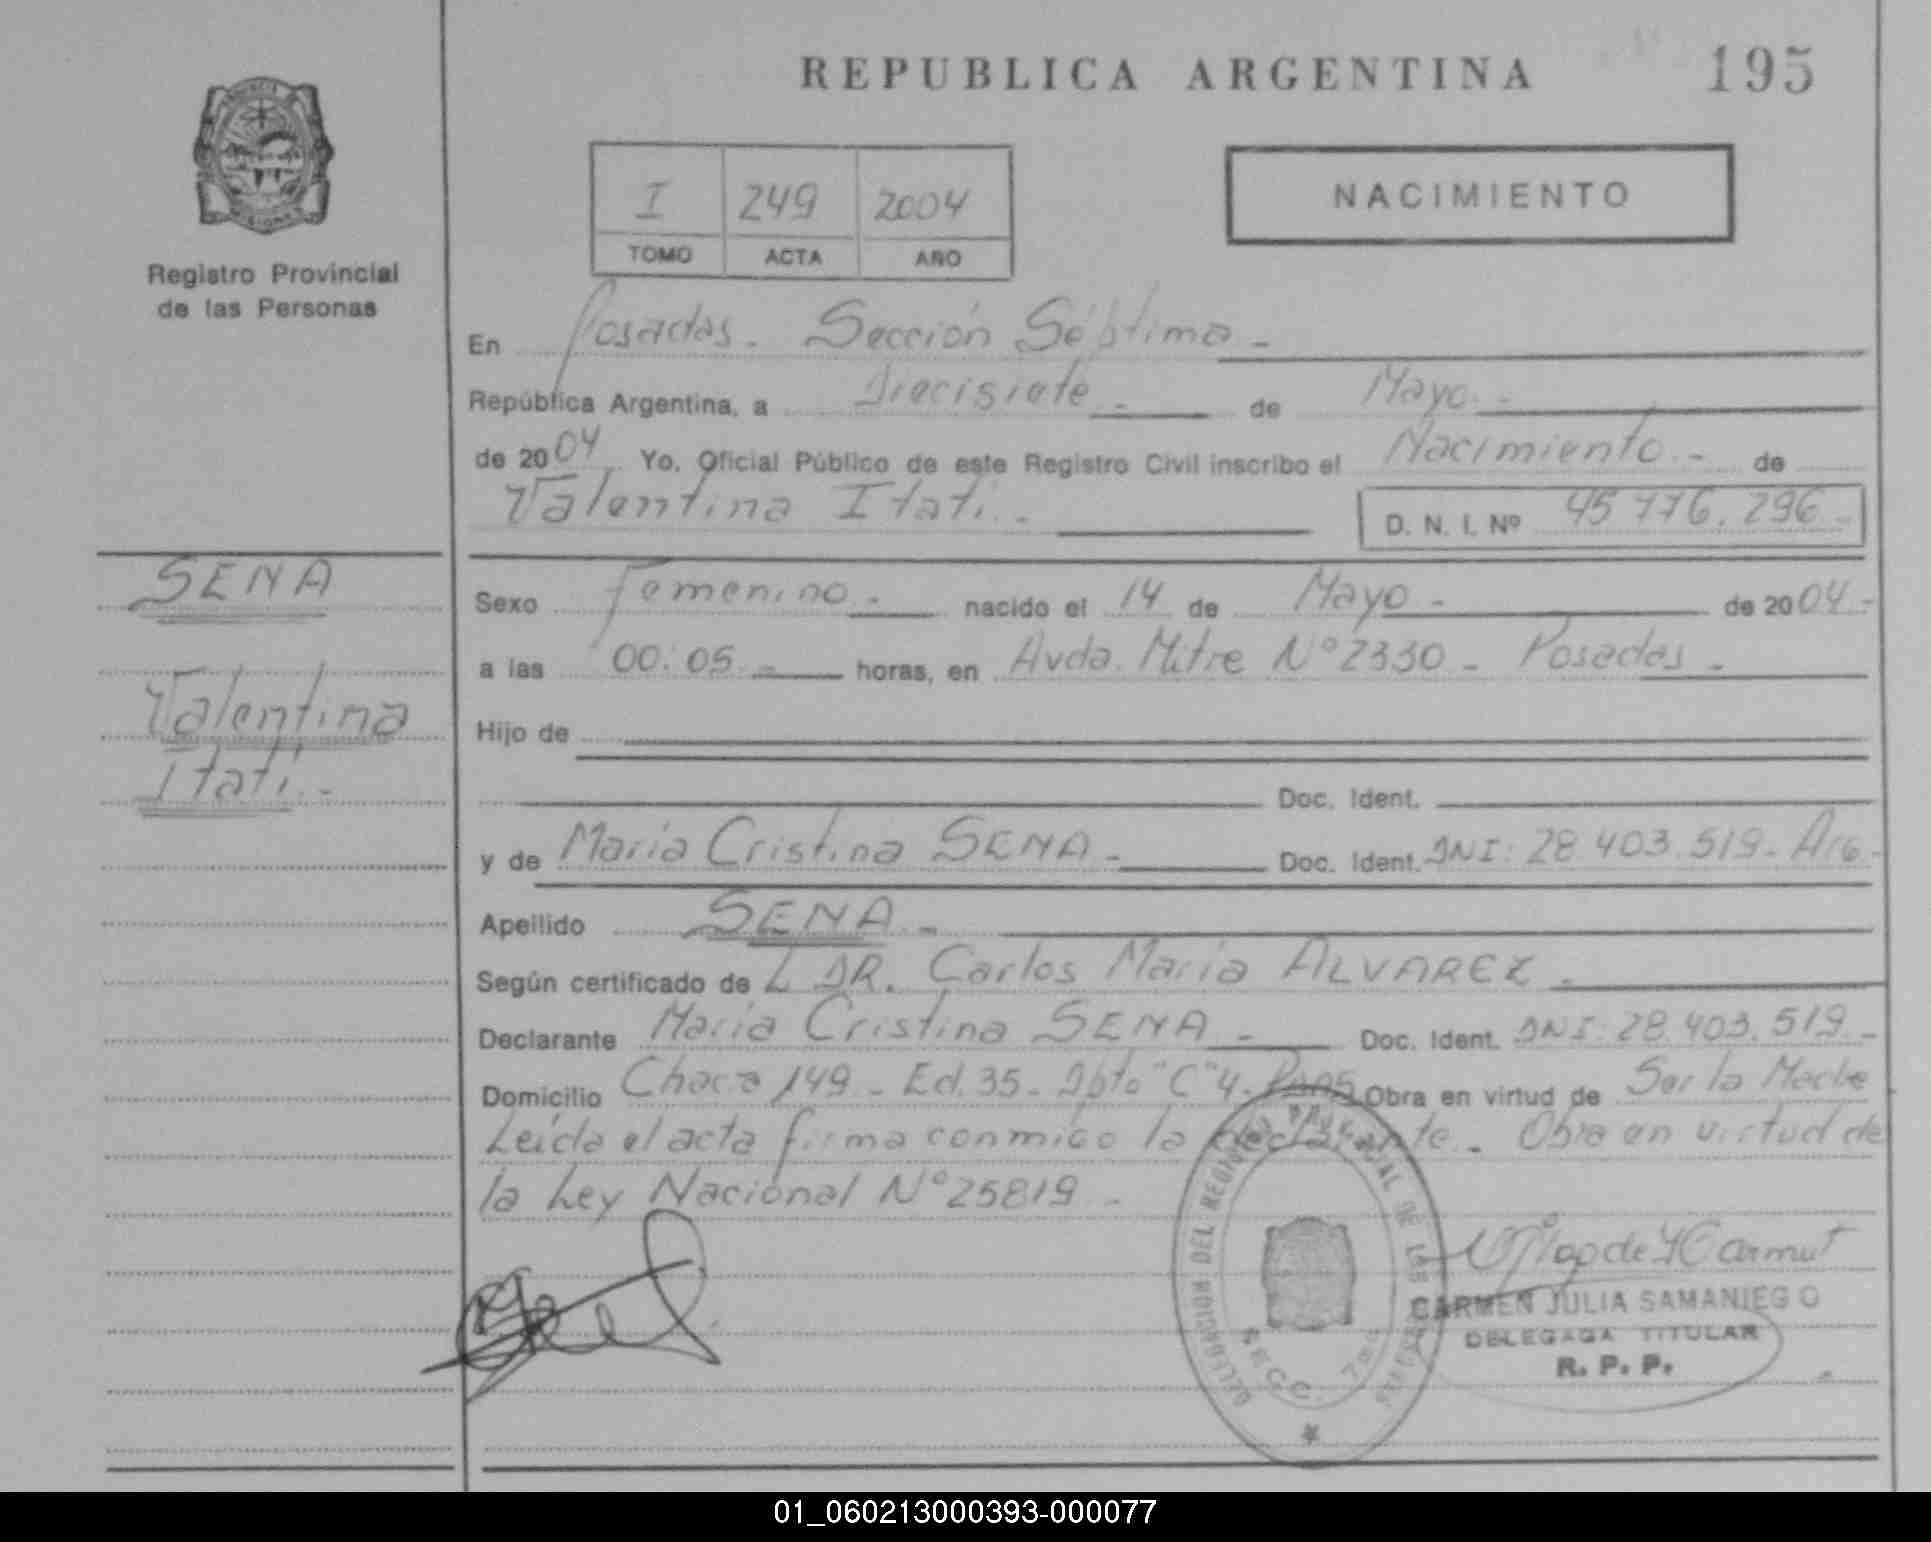 REPUBLICA ARGENTINA 195
I 249 2004
TOMO ACTA AÑO
NACIMIENTO
Registro Provincial
de las Personas
En Posadas. Sección Séptima -
República Argentina, a Diecisiete - de Mayo. -
de 2004 Yo, Oficial Público de este Registro Civil inscribo el Nacimiento. - de
Valentina Itatí. - D. N. I. Nº 45 776. 296 -
SENA
Valentina
Itatí. -
Sexo femenino - nacido el 14 de Mayo - de 2004 -
a las 00:05. - horas, en Avda. Mitre Nº 2330 - Posadas -
Hijo de
Doc. Ident.
y de María Cristina SENA - Doc. Ident. DNI: 28 403. 519 - Arg -
Apellido SENA. -
Según certificado de L DR. Carlos María ALVAREZ. -
Declarante María Cristina SENA - Doc. Ident. DNI: 28. 403. 519 -
Domicilio Chacra 149 - Ed. 35 - Dpto "C" 4 - Obra en virtud de Ser la Madre
Leída el acta firma conmigo la declarante - Obra en virtud de
la Ley Nacional Nº 25819 -
DELEGACION DEL REGISTRO PROVINCIAL DE LAS PERSONAS
SECC. 7ma
CARMEN JULIA SAMANIEGO
DELEGADA TITULAR
R. P. P.
01_060213000393-000077